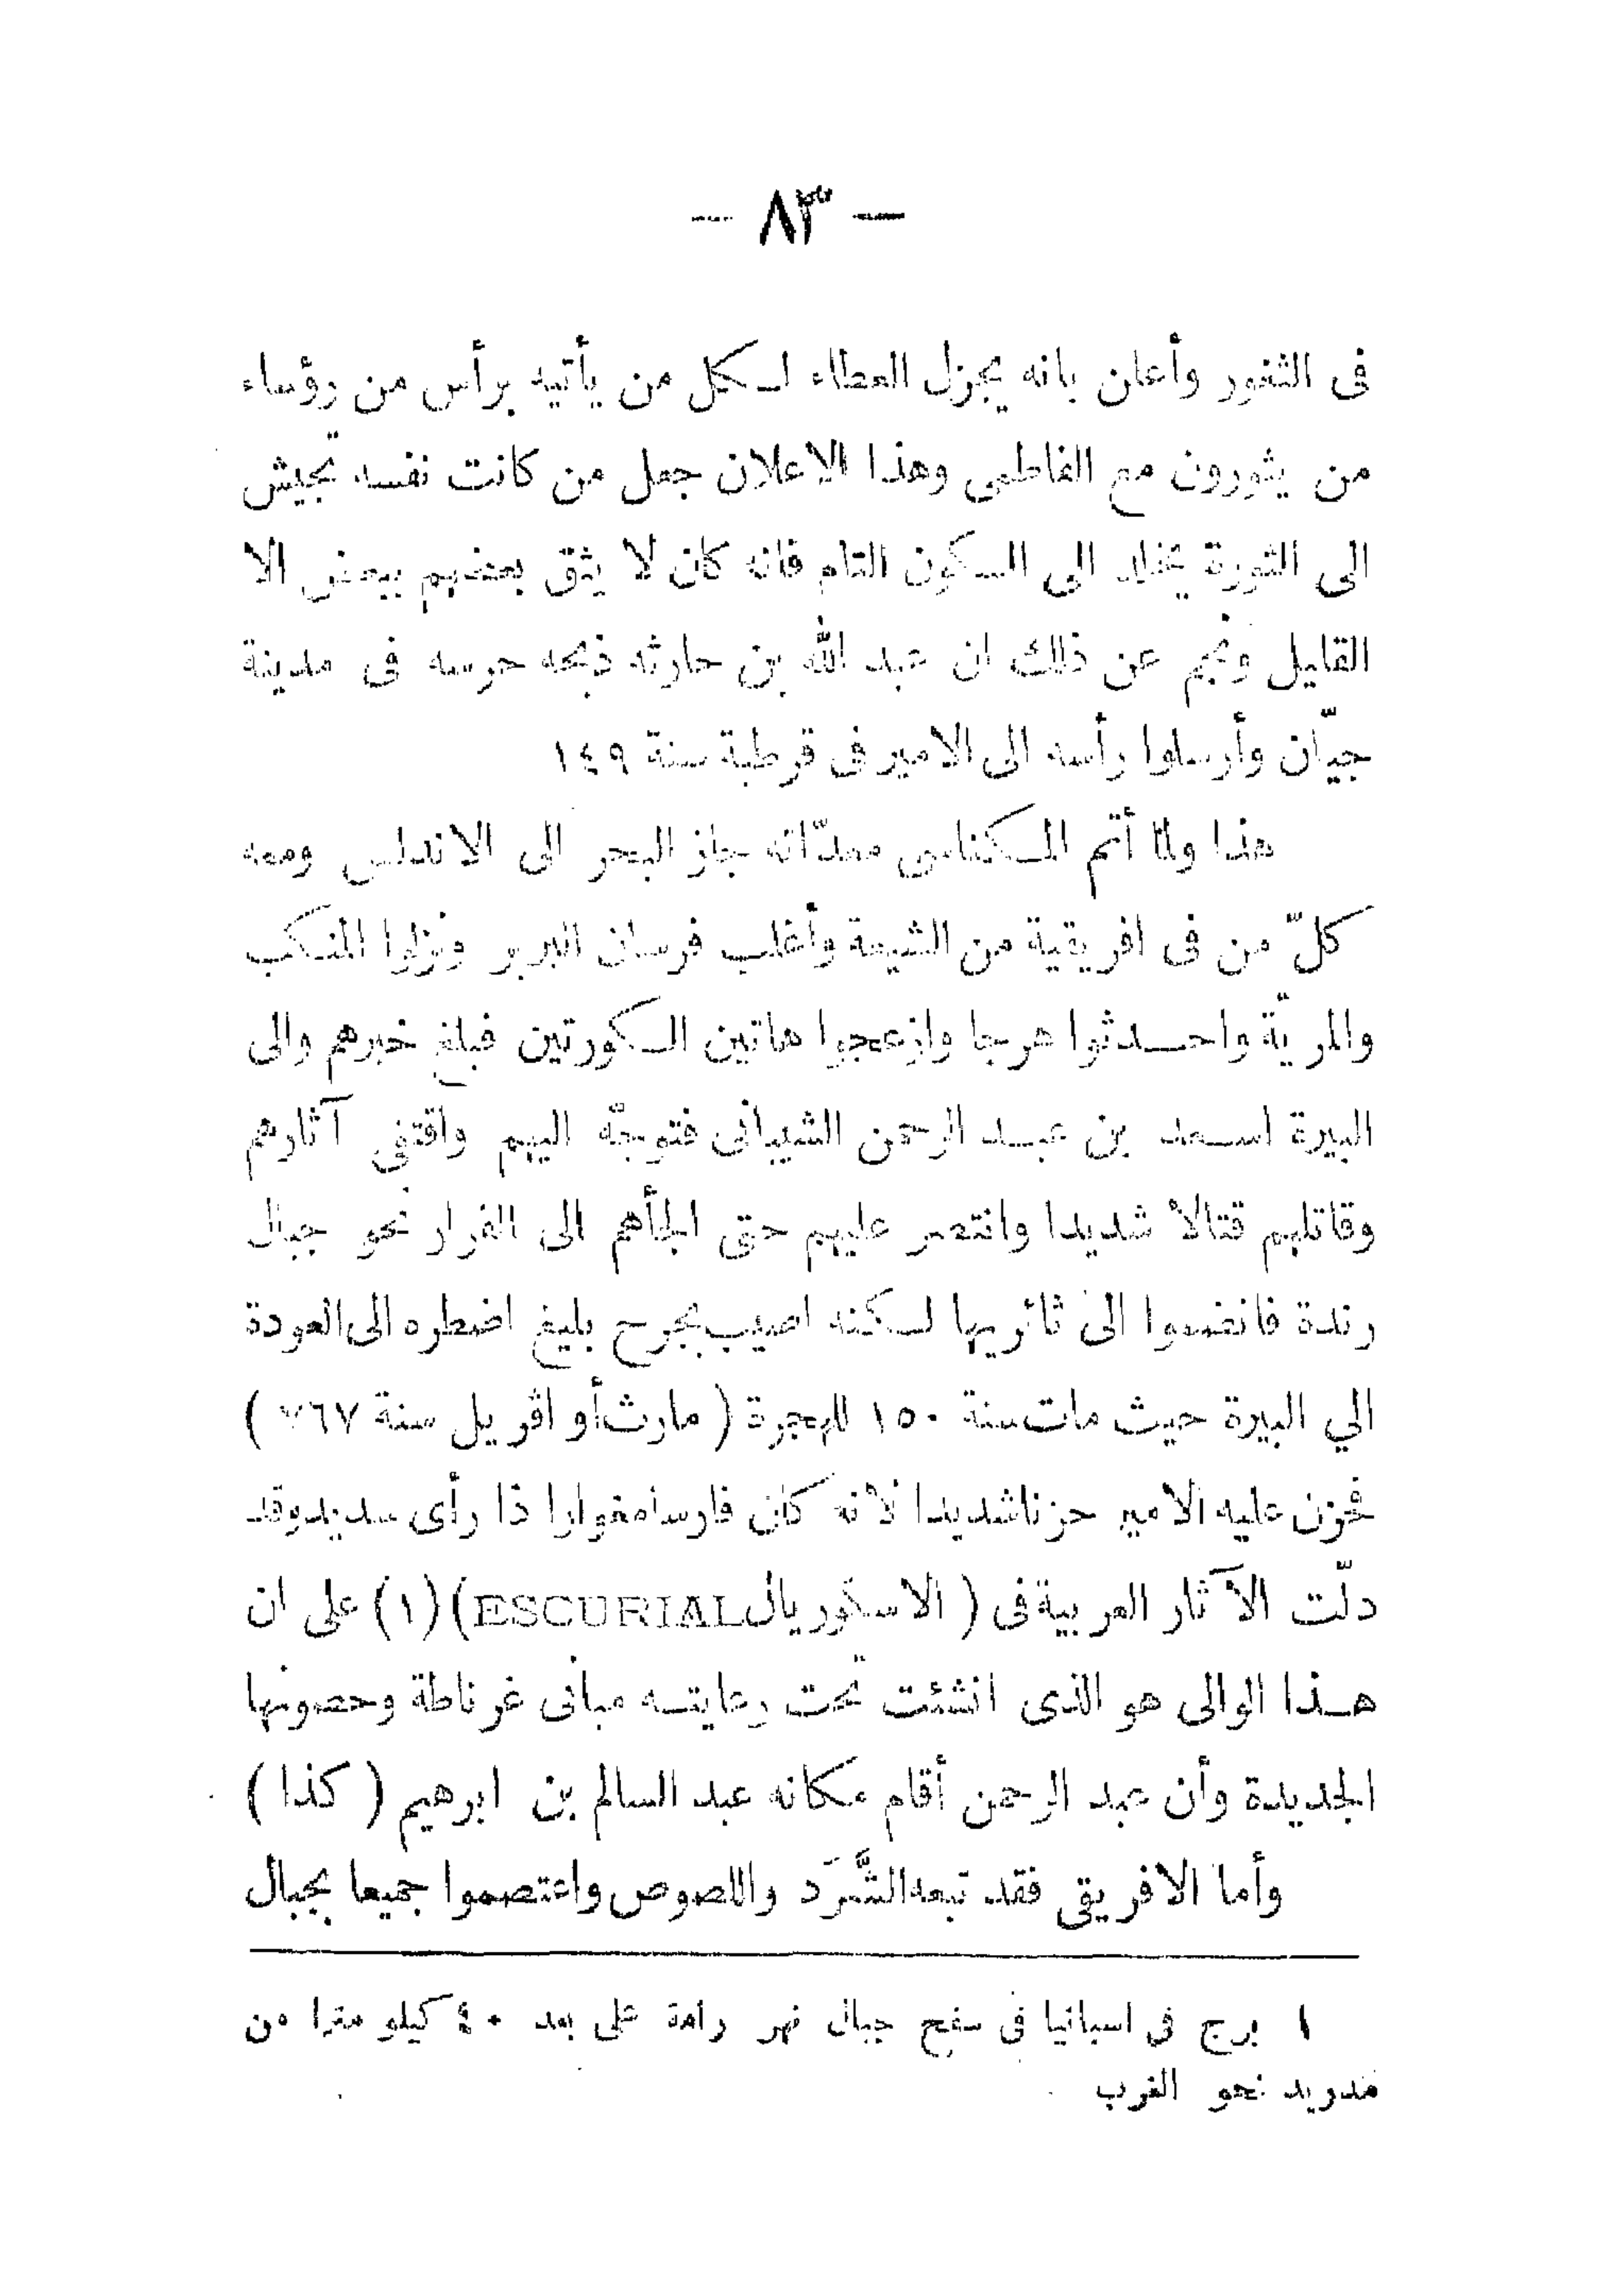 — ٨٣ —
فى الثغور وأعلن بانه يجزل العطاء لكل من يأتيه برأس من رؤساء
من يثورون مع الفاطمى وهذا الاعلان جعل من كانت نفسه تجيش
الى الثورة يخلد الى السكون التام فانه كان لا يثق بعضهم ببعض الا
القليل ونجم عن ذلك ان عبد الله بن حارثه ذبحه حرسه فى مدينة
جيّان وأرسلوا رأسه الى الامير فى قرطبة سنة ١٤٩
هذا ولما أتم المكناسى معدّاته جاز البحر الى الاندلس ومعه
كلّ من فى افريقية من الشيعة وأغلب فرسان البربر ونزلوا المنكب
والمريّة واحدثوا هرجا وازعجوا هاتين الكورتين فبلغ خبرهم والى
البيرة اسعد بن عبد الرحمن الشيبانى فتوجّه اليهم واقتفى آثارهم
وقاتلهم قتالا شديدا وانتصر عليهم حتى الجأهم الى الفرار نحو جبال
رندة فانضموا الى ثائريها لكنه اصيب بجرح بليغ اضطره الى العودة
الي البيرة حيث مات سنة ١٥٠ للهجرة ( مارث أو اڤريل سنة ٧٦٧ )
فحزن عليه الامير حزنا شديدا لانه كان فارسا مغوارا ذا رأى سديد وقد
دلّت الآثار العربية فى ( الاسكوريال ESCURIAL) (١) على ان
هذا الوالى هو الذى انشئت تحت رعايته مبانى غرناطة وحصونها
الجديدة وأن عبد الرحمن أقام مكانه عبد السالم بن ابرهيم ( كذا )
وأما الافريقى فقد تبعه الشَّرَد واللصوص واعتصموا جميعا بجبال
١ برج فى اسبانيا فى سفح جبال نهر رامة على بعد ٤٠ كيلو مترا من
مدريد نحو الغرب